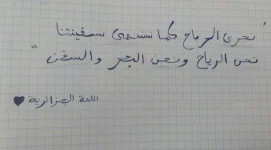 " تجري الرياح كما تشتهي سفينتنا
نحن الرياح ونحن البحر والسفن "
اللغة الجزائرية ♥